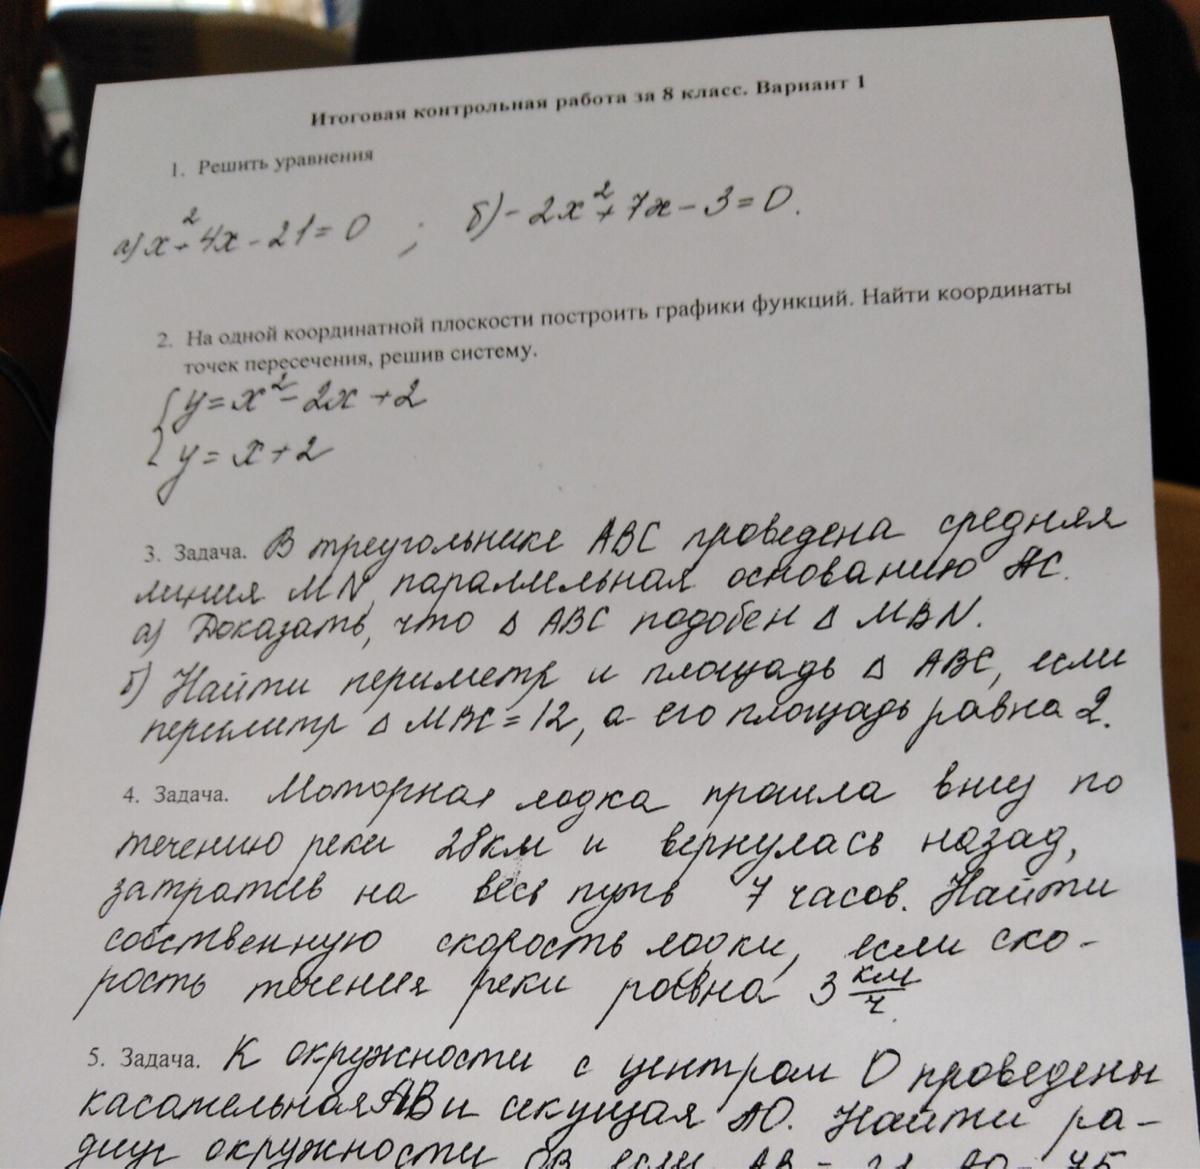 Итоговая контрольная работа за 8 класс. Вариант 1
1. Решить уравнения
а) x²+4x-21=0 ; б) -2x²+7x-3=0.
2. На одной координатной плоскости построить графики функций. Найти координаты
точек пересечения, решив систему.
{ y=x²-2x+2
y=x+2
3. Задача. В треугольнике ABC проведена средняя
линия MN, параллельная основанию AC.
а) Доказать, что Δ ABC подобен Δ MBN.
б) Найти периметр и площадь Δ ABC, если
периметр Δ MBC=12, а его площадь равна 2.
4. Задача. Моторная лодка прошла вниз по
течению реки 28км и вернулась назад,
затратив на весь путь 7 часов. Найти
собственную скорость лодки, если ско-
рость течения реки равна 3 км/ч.
5. Задача. К окружности с центром О проведены
касательная AB и секущая AO. Найти ра-
диус окружности если AB =